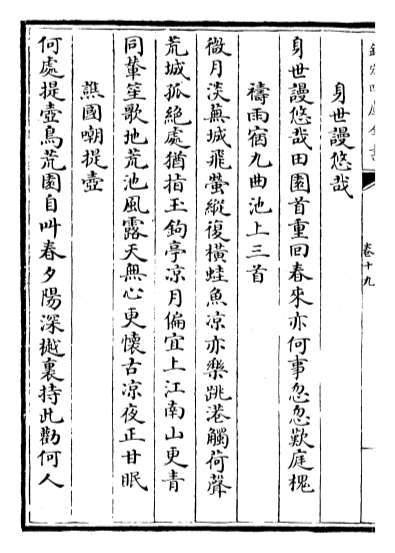 欽定四庫全書
卷十九
身世謾悠哉
身世謾悠哉田園首重回春來亦何事忽忽歎庭槐
禱雨宿九曲池上三首
微月淡蕪城飛螢縱復橫蛙魚凉亦樂跳港觸荷聲
荒城孤絕處猶指玉鉤亭凉月偏宜上江南山更青
同輩笙歌地荒池風露天無心更懷古凉夜正甘眠
譙國嘲提壺
何處提壺鳥荒園自叫春夕陽深樾裏持此勸何人